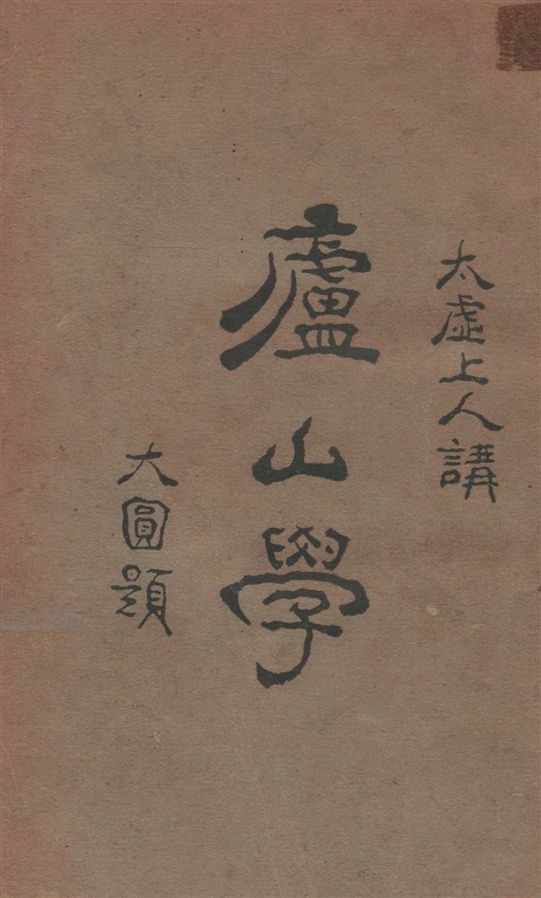 太虛上人講
廬山學
大圓題